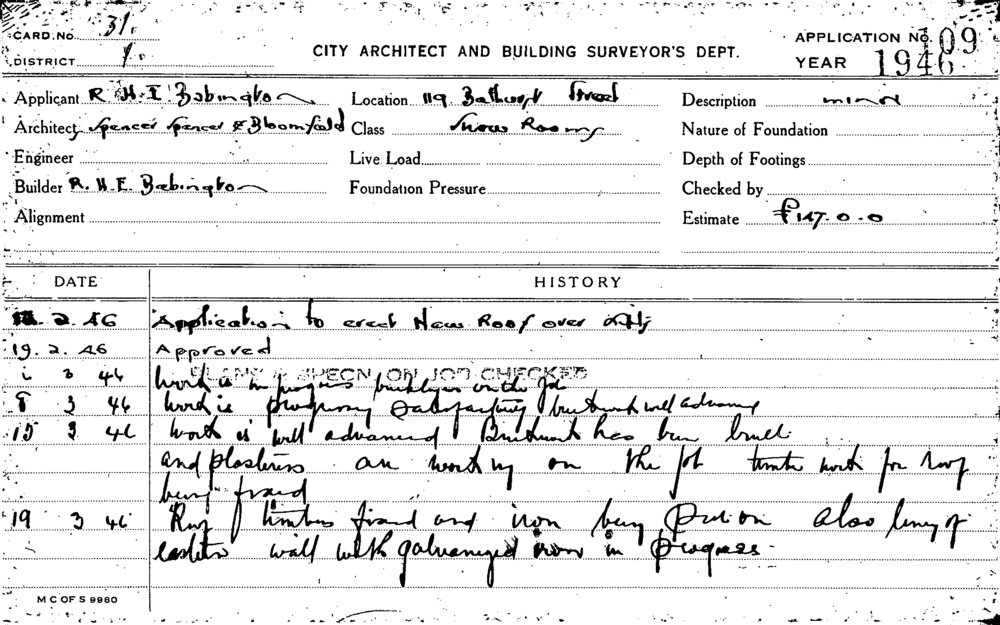 CARD. No. 31.
APPLICATION No. 109
CITY ARCHITECT AND BUILDING SURVEYOR'S DEPT.
DISTRICT 1.
YEAR 1946
Applicant R. H. E. Babington Location 119 Bathurst Street Description minor
Architect Spencer Spencer & Bloomfield Class Show Rooms Nature of Foundation
Engineer Live Load Depth of Footings
Builder R. H. E. Babington Foundation Pressure Checked by
Alignment Estimate £147.0.0
DATE HISTORY
2. 46 Application to erect New Roof over
19. 2. 46 Approved
PLANS & SPECN ON JOB CHECKED
1 3 46 Work is in progress bricklayers on the Job
8 3 46 Work is progressing satisfactory brickwork well advancing
15 3 46 Work is well advanced Brickwork has been
and plasterers are working on the job timber work for roof
being fixed
19 3 46 Roof timbers fixed and iron being put on also lining of
eastern wall with galvanized iron in progress.
M C OF S 9980